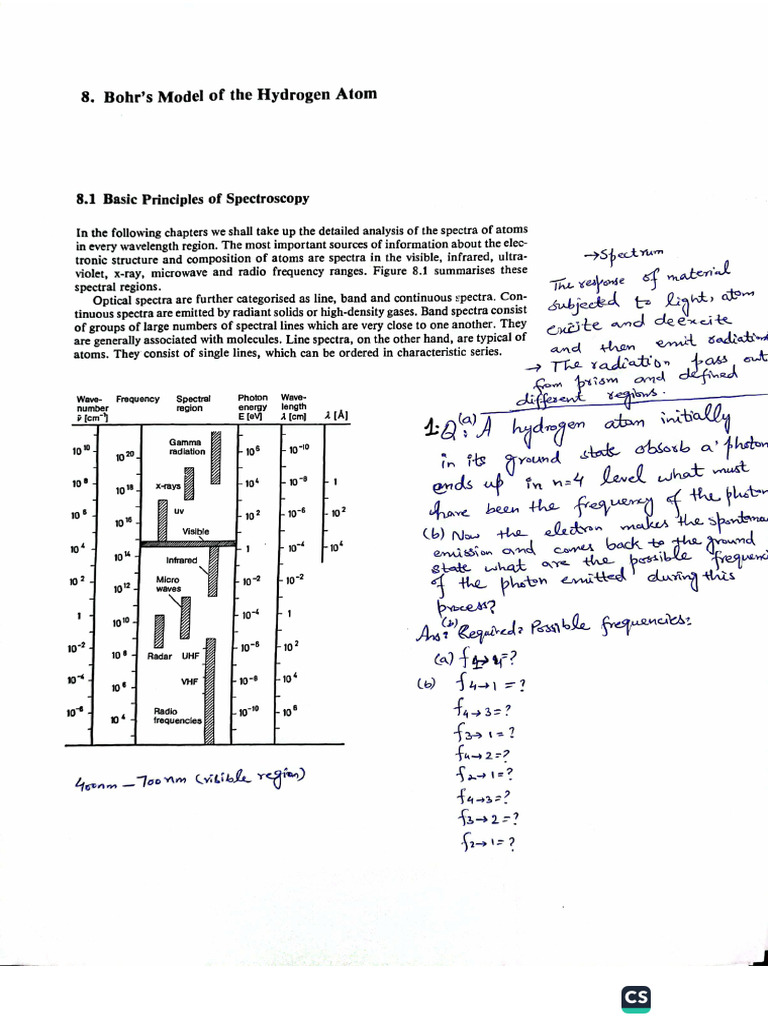 8. Bohr's Model of the Hydrogen Atom
8.1 Basic Principles of Spectroscopy
In the following chapters we shall take up the detailed analysis of the spectra of atoms
in every wavelength region. The most important sources of information about the elec-
tronic structure and composition of atoms are spectra in the visible, infrared, ultra-
violet, x-ray, microwave and radio frequency ranges. Figure 8.1 summarises these
spectral regions.
Optical spectra are further categorised as line, band and continuous spectra. Con-
tinuous spectra are emitted by radiant solids or high-density gases. Band spectra consist
of groups of large numbers of spectral lines which are very close to one another. They
are generally associated with molecules. Line spectra, on the other hand, are typical of
atoms. They consist of single lines, which can be ordered in characteristic series.
→Spectrum
The response of material
subjected to light, atom
excite and deexcite
and then emit radiation
→ The radiation pass out
from prism and defined
different regions.
Wave- Frequency Spectral Photon Wave-
number region energy length λ [Å]
ν̄ [cm⁻¹] E [eV] λ [cm]
10¹⁰ 10²⁰ Gamma radiation 10⁶ 10⁻¹⁰
10⁸ 10¹⁸ x-rays 10⁴ 10⁻⁸ 1
10⁶ 10¹⁶ uv 10² 10⁻⁶ 10²
Visible
10⁴ 10¹⁴ Infrared 1 10⁻⁴ 10⁴
10² 10¹² Micro waves 10⁻² 10⁻²
1 10¹⁰ 10⁻⁴ 1
10⁻² 10⁸ Radar UHF 10⁻⁶ 10²
10⁻⁴ 10⁶ VHF 10⁻⁸ 10⁴
10⁻⁶ 10⁴ Radio frequencies 10⁻¹⁰ 10⁶
400nm – 700nm (visible region)
1: Q: (a) A hydrogen atom initially
in its ground state absorb a photon
ends up in n=4 level what must
have been the frequency of the photon
(b) Now the electron makes the spontaneou
emission and comes back to the ground
state what are the possible frequenci
of the photon emitted during this
process?
Ans: (b) Required: Possible frequencies:
(a) f1→4=?
(b) f4→1=?
f4→3=?
f3→1=?
f4→2=?
f2→1=?
f4→3=?
f3→2=?
f2→1=?
CS